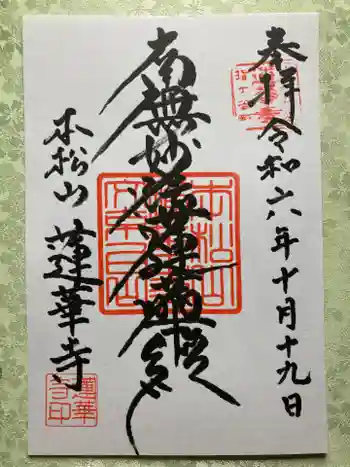 奉拝 令和六年十月十九日
南無妙法蓮華経
本松山 蓮華寺
蓮華寺印